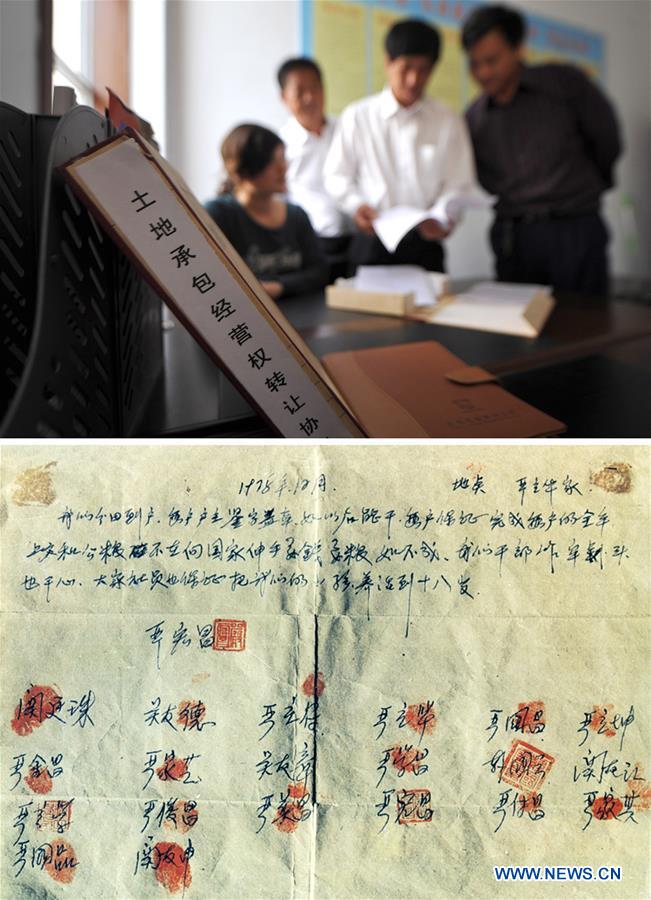 土地承包经营权转让协
1978年.12月. 地点 严立华家.
我们分田到户,每户户主签字盖章,如以后能干,每户保证完成每户的全年
上交和公粮 不在向国家伸手要钱要粮 如不成,我们干部作牢刹头
也干心,大家社员也保证把我们的小孩养活到十八岁.
严宏昌
关廷珠 关友德 严立符 严立华 严国昌 严立坤
严金昌 严家芝 关友章 严学昌 韩国云 关友江
严立学 严俊昌 严美昌 严宏昌 严付昌 严家其
严国品 关友申
WWW.NEWS.CN